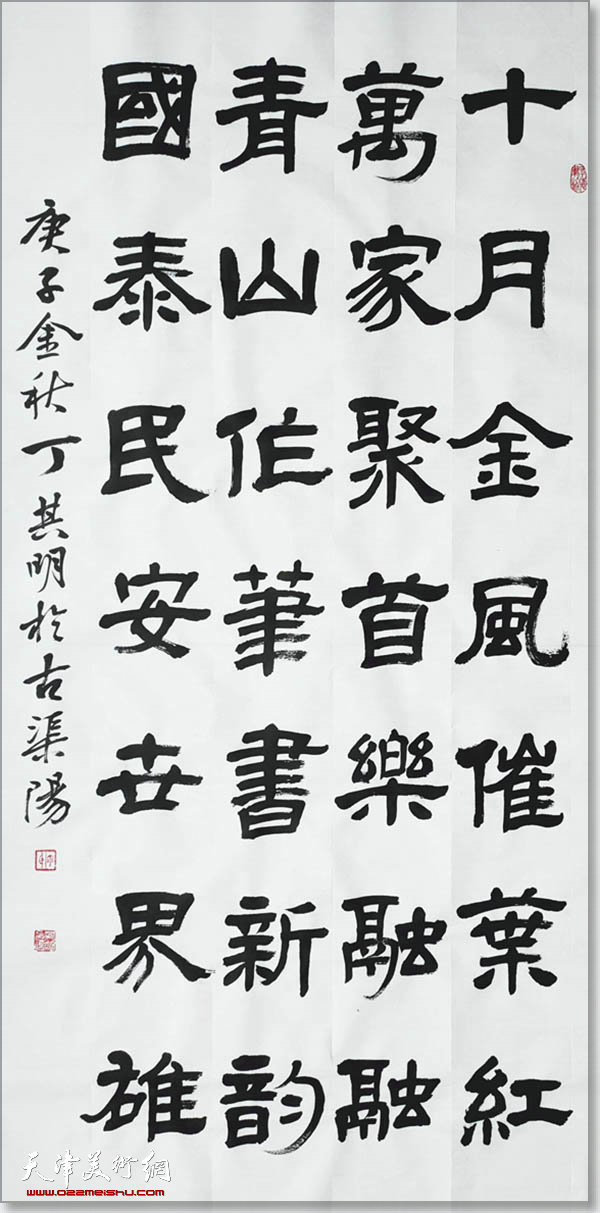 十月金風催葉紅
萬家聚首樂融融
青山作筆書新韵
國泰民安世界雄
庚子金秋丁其明於古渠陽
天津美術網
www.022meishu.com